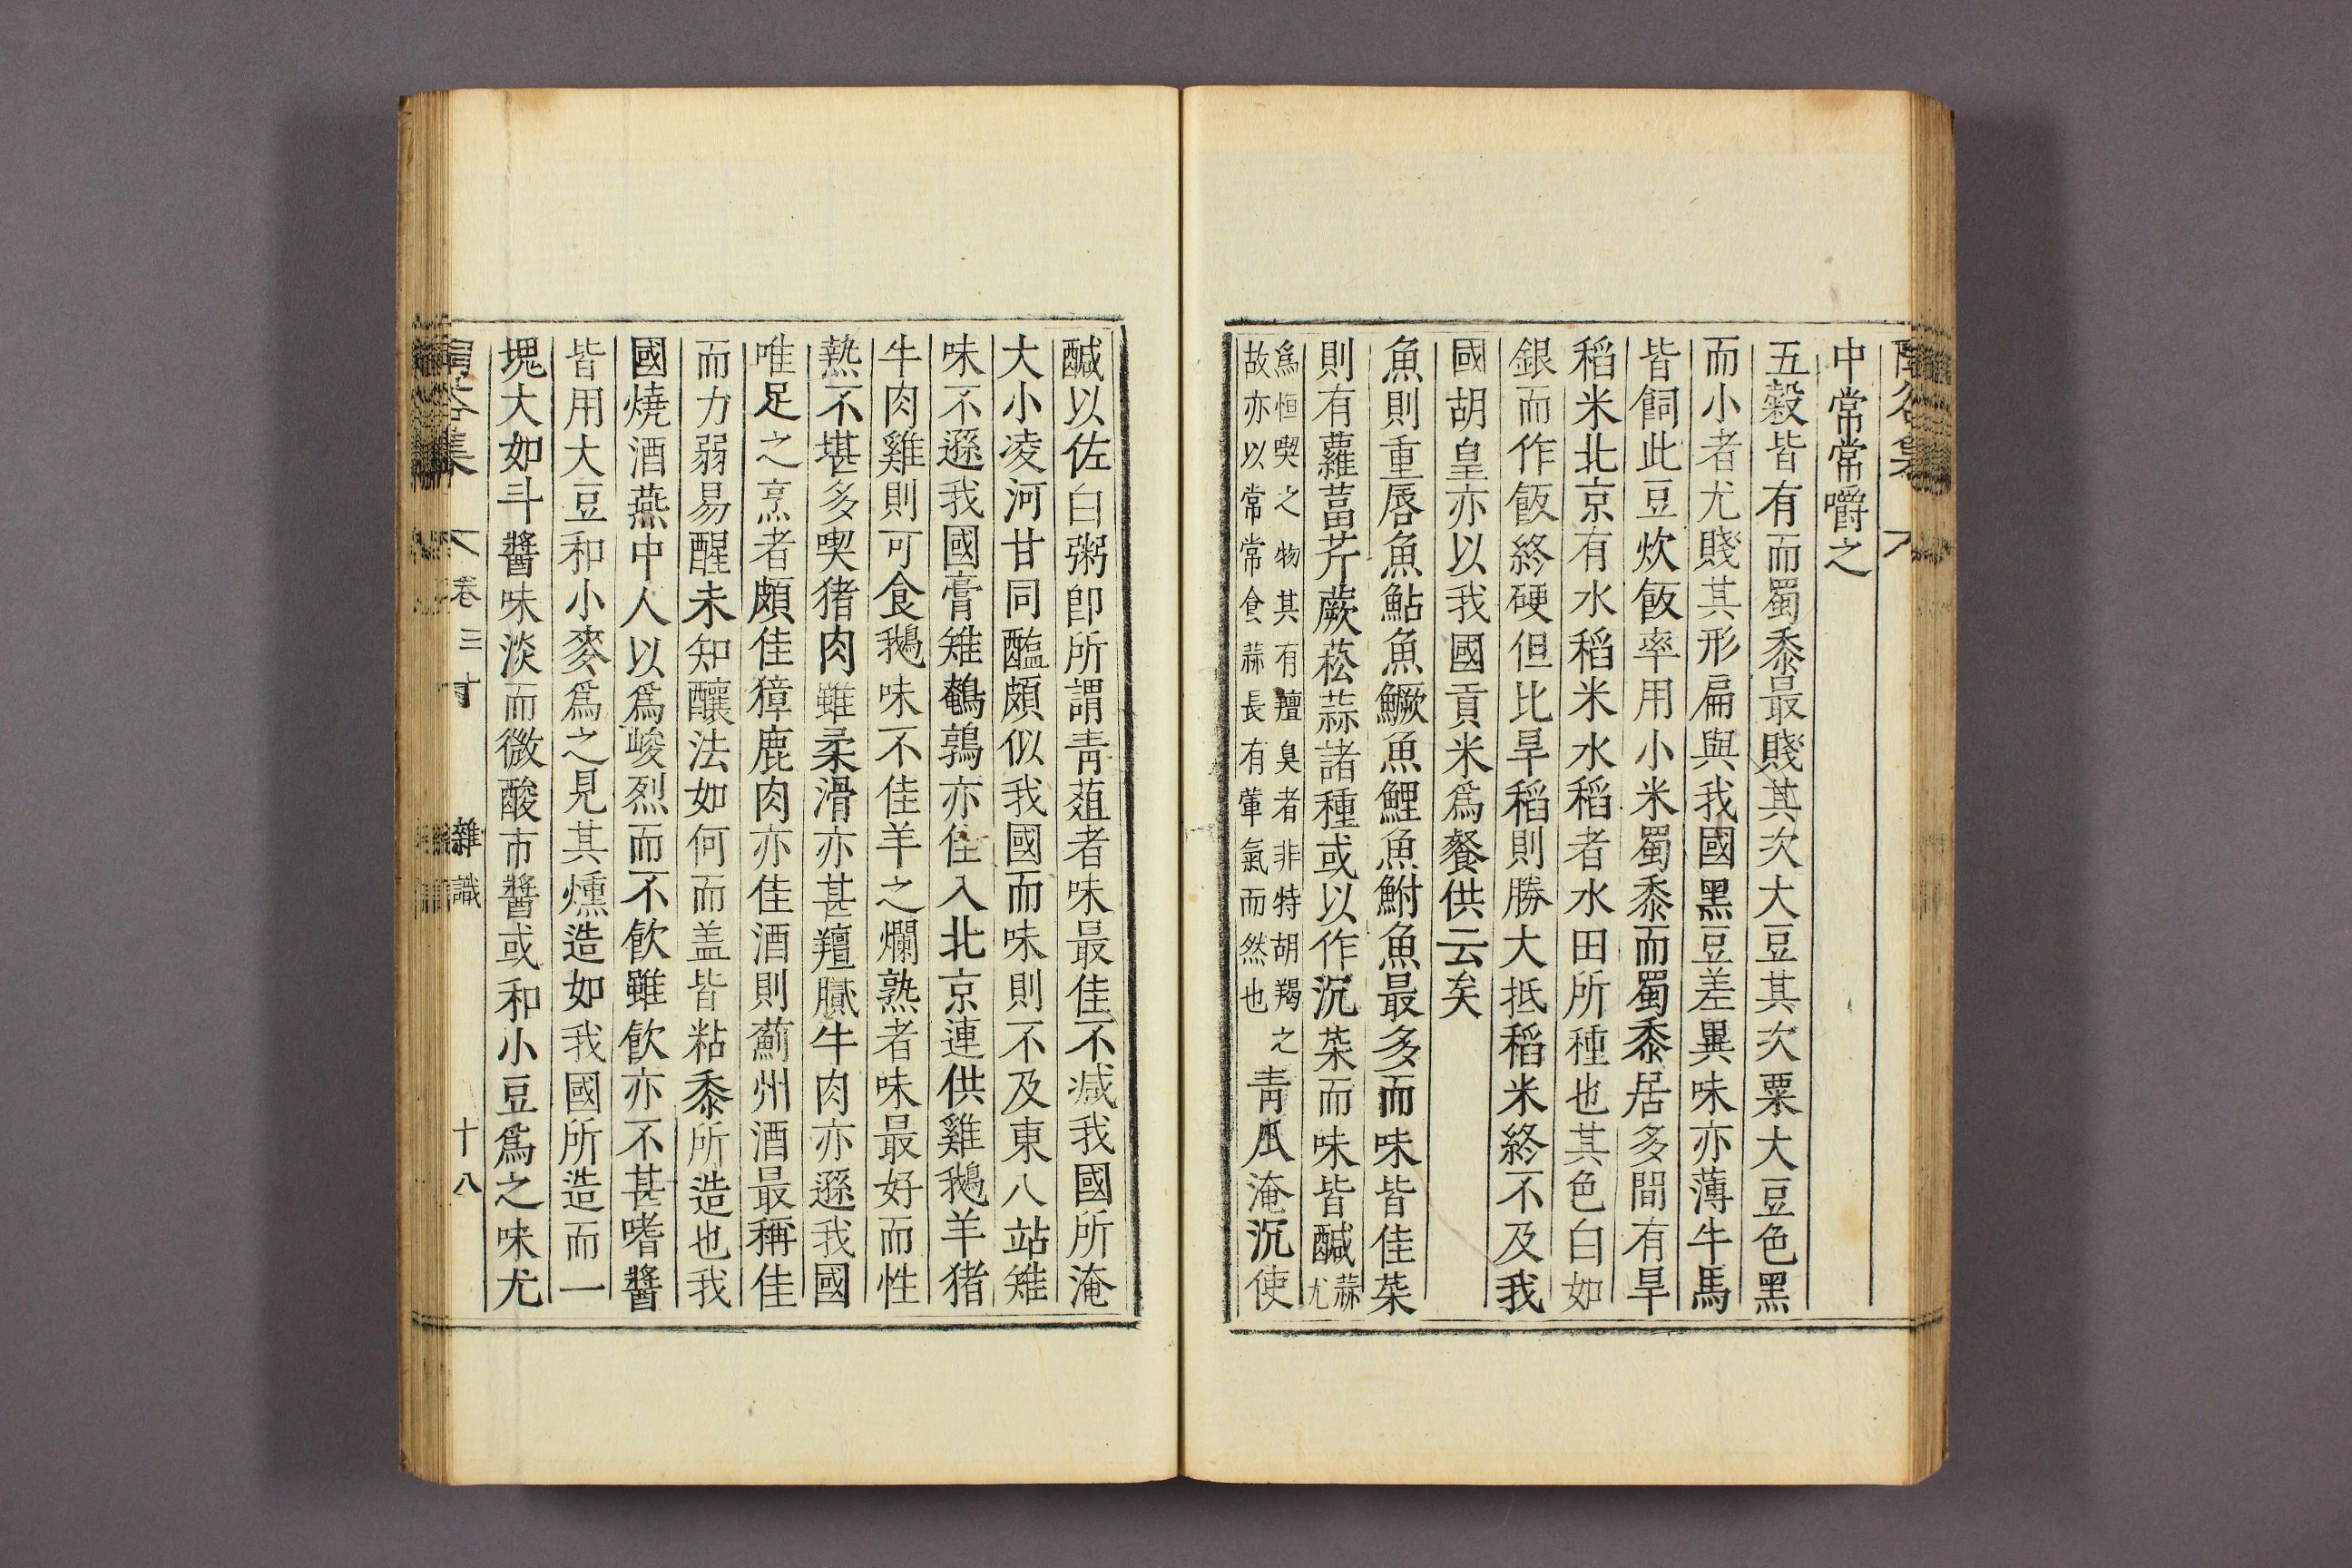 中常常嚼之
五穀皆有而蜀黍最賤其次大豆其次粟大豆色黑
而小者尤賤其形扁與我國黑豆差異味亦薄牛馬
皆飼此豆炊飯率用小米蜀黍而蜀黍居多間有旱
稻米北京有水稻米水稻者水田所種也其色白如
銀而作飯終硬但比旱稻則勝大抵稻米終不及我
國胡皇亦以我國貢米爲餐供云矣
魚則重唇魚鮎魚鱖魚鯉魚鮒魚最多而味皆佳菜
則有蘿葍芹蕨菘蒜諸種或以作沉菜而味皆鹹蒜尤
爲恒喫之物其有羶臭者非特胡羯之
故亦以常常食蒜長有葷氣而然也
靑瓜淹沉使
鹹以佐白粥卽所謂靑葅者味最佳不减我國所淹
大小凌河甘同醢頗似我國而味則不及東八站雉
味不遜我國膏雉鵪鶉亦佳入北京連供雞鵝羊猪
牛肉雞則可食鵝味不佳羊之爛熟者味最好而性
熱不堪多喫猪肉雖柔滑亦甚羶膩牛肉亦遜我國
唯足之烹者頗佳獐鹿肉亦佳酒則薊州酒最稱佳
而力弱易醒未知釀法如何而盖皆粘黍所造也我
國燒酒燕中人以爲峻烈而不飮雖飮亦不甚嗜醬
皆用大豆和小麥爲之見其燻造如我國所造而一
塊大如斗醬味淡而微酸市醬或和小豆爲之味尤
集 卷三十 雜識 十八